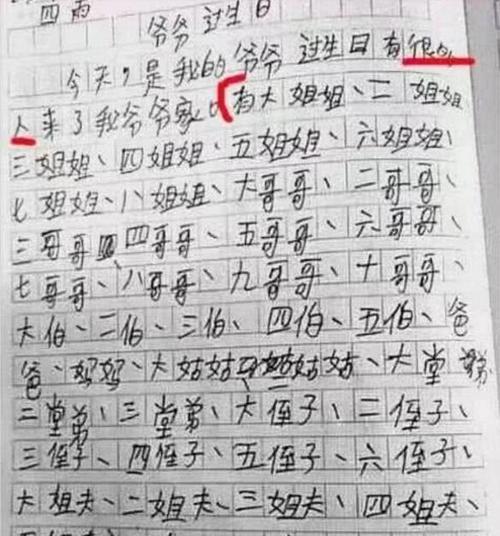 四 雨
爷爷过生日
今天,是我的爷爷过生日有很多
人来了我爷爷家。有大姐姐、二姐姐
三姐姐、四姐姐、五姐姐、六姐姐、
七姐姐、八姐姐、大哥哥、二哥哥、
三哥哥、四哥哥、五哥哥、六哥哥、
七哥哥、八哥哥、九哥哥、十哥哥、
大伯、二伯、三伯、四伯、五伯、爸
爸、妈妈、大姑姑、二姑姑、大堂弟
二堂弟、三堂弟、大侄子、二侄子、
三侄子、四侄子、五侄子、六侄子、
大姐夫、二姐夫、三姐夫、四姐夫、